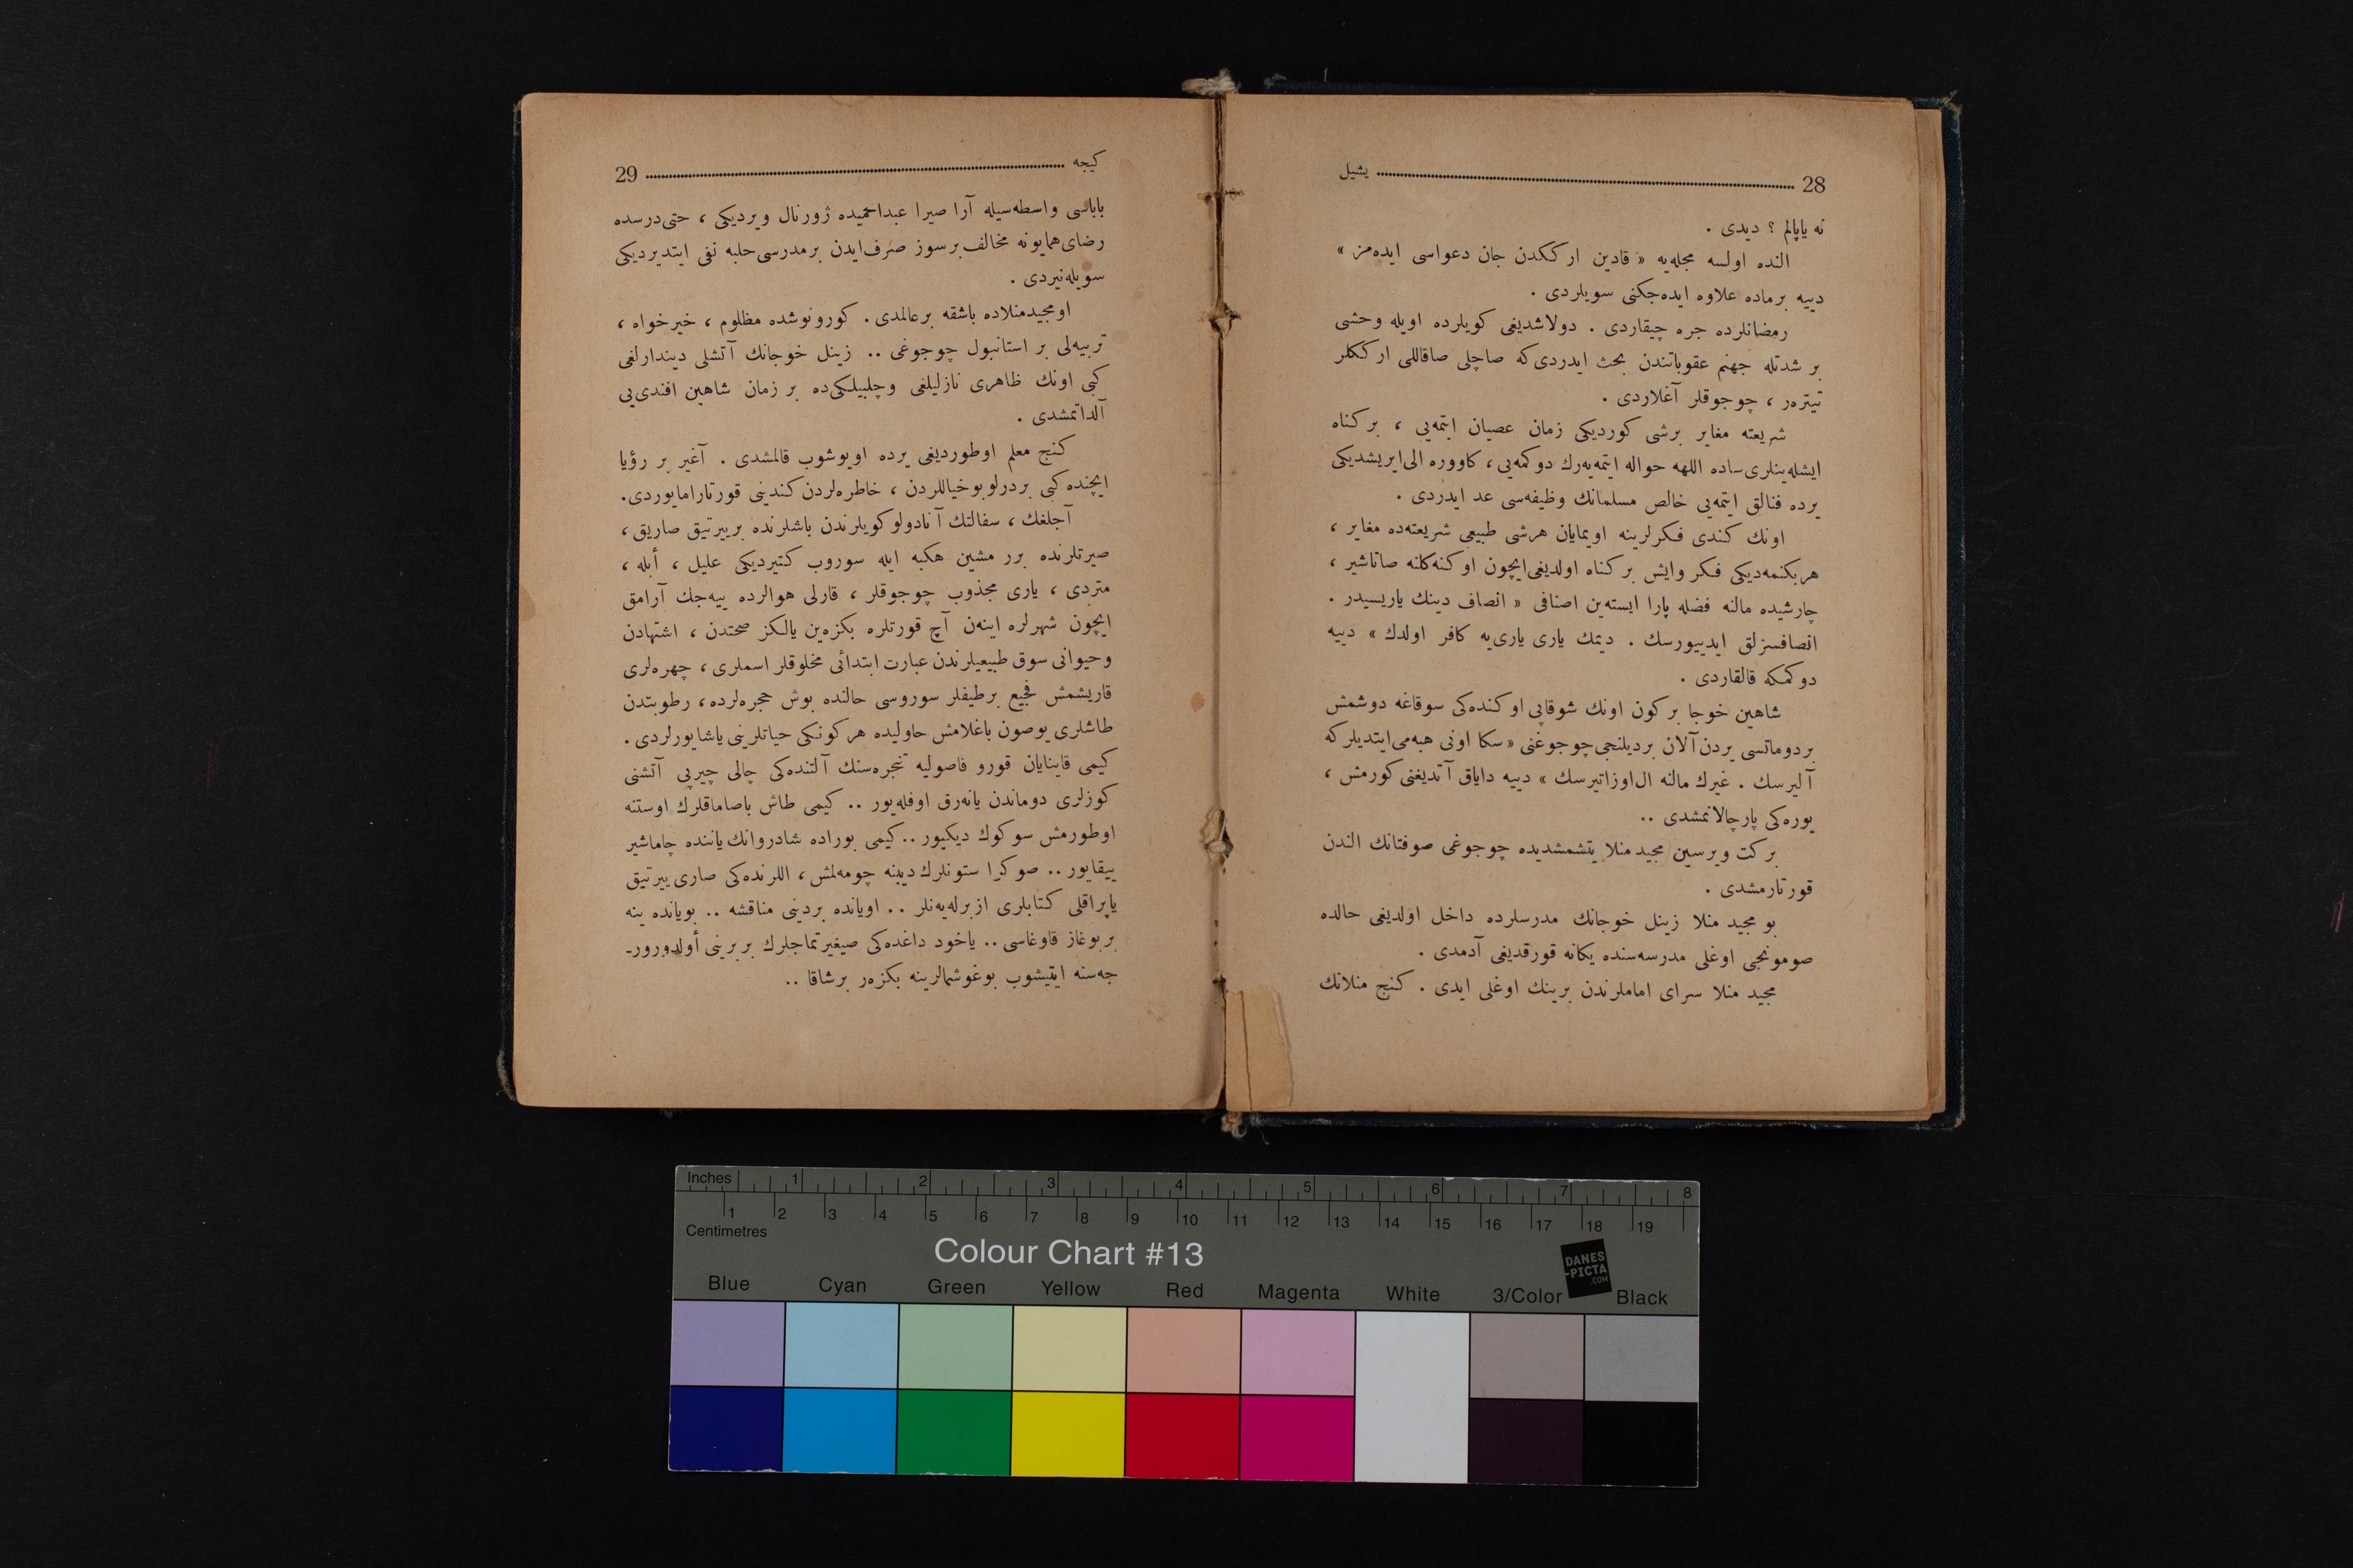 28 یشیل
نه یاپالم ؟ دیدی .
النده اولسه مجله‌یه « قادین ارككدن جان دعواسی ایده‌مز »
دییه برماده علاوه ایده‌جكنی سویلردی .
رمضانلرده جره چیقاردی . دولاشدیغی كویلرده اویله وحشی
بر شدتله جهنم عقوباتندن بحث ایدردی‌كه صاچلی صاقاللی ارككلر
تیتره‌ر ، چوجوقلر آغلاردی .
شریعته مغایر برشی كوردیكی زمان عصیان ایتمه‌یی ، بر كناه
ایشله‌ینلری ساده اللهه حواله ایتمه‌یه‌رك دوكمه‌یی ، كاووره الی ایریشدیكی
یرده فنالق ایتمه‌یی خالص مسلمانك وظیفه‌سی عد ایدردی .
اونك كندی فكرلرینه اویمایان هرشی طبیعی شریعته‌ده مغایر ،
هربكنمه‌دیكی فكر وایش بر كناه اولدیغی‌ایچون اوكنه‌كلنه صاتاشیر ،
چارشیده مالنه فضله پارا ایسته‌ین اصنافی « انصاف دینك یاریسیدر .
انصافسزلق ایدییورسك . دیمك یاری یاری‌یه كافر اولدك » دییه
دوكمكه قالقاردی .
شاهین خوجا بر كون اونك شوقاپی اوكنده‌كی سوقاغه دوشمش
بردوماتسی یردن آلان بردیلنجی چوجوغنی « سكا اونی هبه‌می‌ایتدیلركه
آلیرسك . غیرك مالنه ال‌اوزاتیرسك » دییه دایاق آتدیغنی كورمش ،
یوره‌كی پارچالانمشدی ..
بركت ویرسین مجید منلا یتشمشدیده چوجوغی صوفتانك الندن
قورتارمشدی .
بو مجید منلا زینل خوجانك مدرسلرده داخل اولدیغی حالده
صومونجی اوغلی مدرسه‌سنده یكانه قورقدیغی آدمدی .
مجید منلا سرای اماملرندن برینك اوغلی ایدی . كنج منلانك
كیجه 29
باباسی واسطه‌سیله آرا صیرا عبدالحمیده ژورنال ویردیكی ، حتی‌درسده
رضای‌همایونه مخالف برسوز صرف‌ایدن برمدرسی حلبه نفی ایتدیردیكی
سویله‌نیردی .
اومجیدمنلاده باشقه برعالمدی . كورونوشده مظلوم ، خیرخواه ،
تربیه‌لی بر استانبول چوجوغی .. زینل خوجانك آتشلی دیندارلغی
كبی اونك ظاهری نازلیلغی وچلبیلكی‌ده بر زمان شاهین افندی‌یی
آلداتمشدی .
كنج معلم اوطوردیغی یرده اویوشوب قالمشدی . آغیر بر رؤیا
ایچنده كبی بردرلوبوخیاللردن ، خاطره‌لردن كندینی قورتارامایوردی.
آجلغك ، سفالتك آنادولو كویلرندن باشلرنده بریرتیق صاریق ،
صیرتلرنده برر مشین هكبه ایله سوروب كتیردیكی علیل ، أبله ،
متردی ، یاری مجذوب چوجوقلر ، قارلی هوالرده ییه‌جك آرامق
ایچون شهرلره اینه‌ن آچ قورتلره بكزه‌ین یالكز صحتدن ، اشتهادن
وحیوانی سوق طبیعیلرندن عبارت ابتدائی مخلوقلر اسملری ، چهره‌لری
قاریشمش فجیع برطیفلر سوروسی حالنده بوش حجره‌لرده ، رطوبتدن
طاشلری یوصون باغلامش حاولیده هر كونكی حیاتلرینی یاشایورلردی .
كیمی قاینایان قورو فاصولیه تنجره‌سنك آلتنده‌كی چالی چیرپی آتشنی
كوزلری دوماندن یانه‌رق اوفله‌یور .. كیمی طاش باصاماقلرك اوستنه
اوطورمش سوكوك دیكیور .. كیمی بوراده شادروانك یاننده چاماشیر
ییقایور .. صوكرا ستونلرك دیبنه چومه‌لمش ، اللرنده‌كی صاری ییرتیق
یاپراقلی كتابلری ازبرله‌یه‌نلر .. اویانده بردینی مناقشه .. بویانده ینه
بربوغاز قاوغاسی .. یاخود داغده‌كی صیغیرتماجلرك بربرینی أولدورور-
جه‌سنه ایتیشوب بوغوشمالرینه بكزه‌ر برشاقا ..
Inches 1 2 3 4 5 6 7 8
1 2 3 4 5 6 7 8 9 10 11 12 13 14 15 16 17 18 19
Centimetres
Colour Chart #13
DANES
-PICTA
.COM
Blue Cyan Green Yellow Red Magenta White 3/Color Black